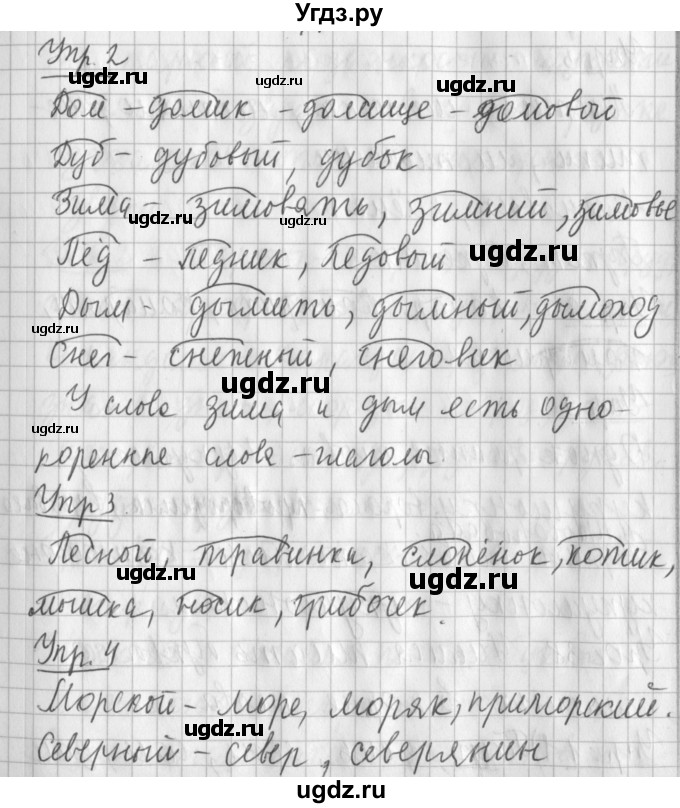 Угдз.ру
Упр. 2
ugdz.ru ugdz.ru ugdz.ru
Дом – домик – домище – домовый
Дуб – дубовый, дубок
ugdz.ru ugdz.ru
Зима – зимовать, зимний, зимовье
ugdz.ru ugdz.ru
Лёд – ледник, ледовый
ugdz.ru
Дым – дымить, дымный, дымоход
ugdz.ru ugdz.ru
Снег – снежный, снеговик
ugdz.ru
У слова зима и дым есть одно-
ugdz.ru ugdz.ru
коренные слова – глаголы.
Упр 3
ugdz.ru
Лесный, травинка, слонёнок, котик,
ugdz.ru ugdz.ru
мышка, носик, грибочек.
Упр. 4
ugdz.ru
Морской – море, моряк, приморский.
ugdz.ru
Северный – север, северянин
ugdz.ru